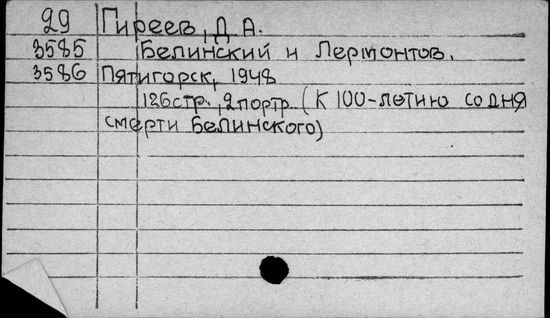 29 Гиреев, Д. А.
3585 Белинский и Лермонтов.
3586 Пятигорск, 1948
126 стр., 2 портр. (К 100-летию со дня
смерти Белинского)